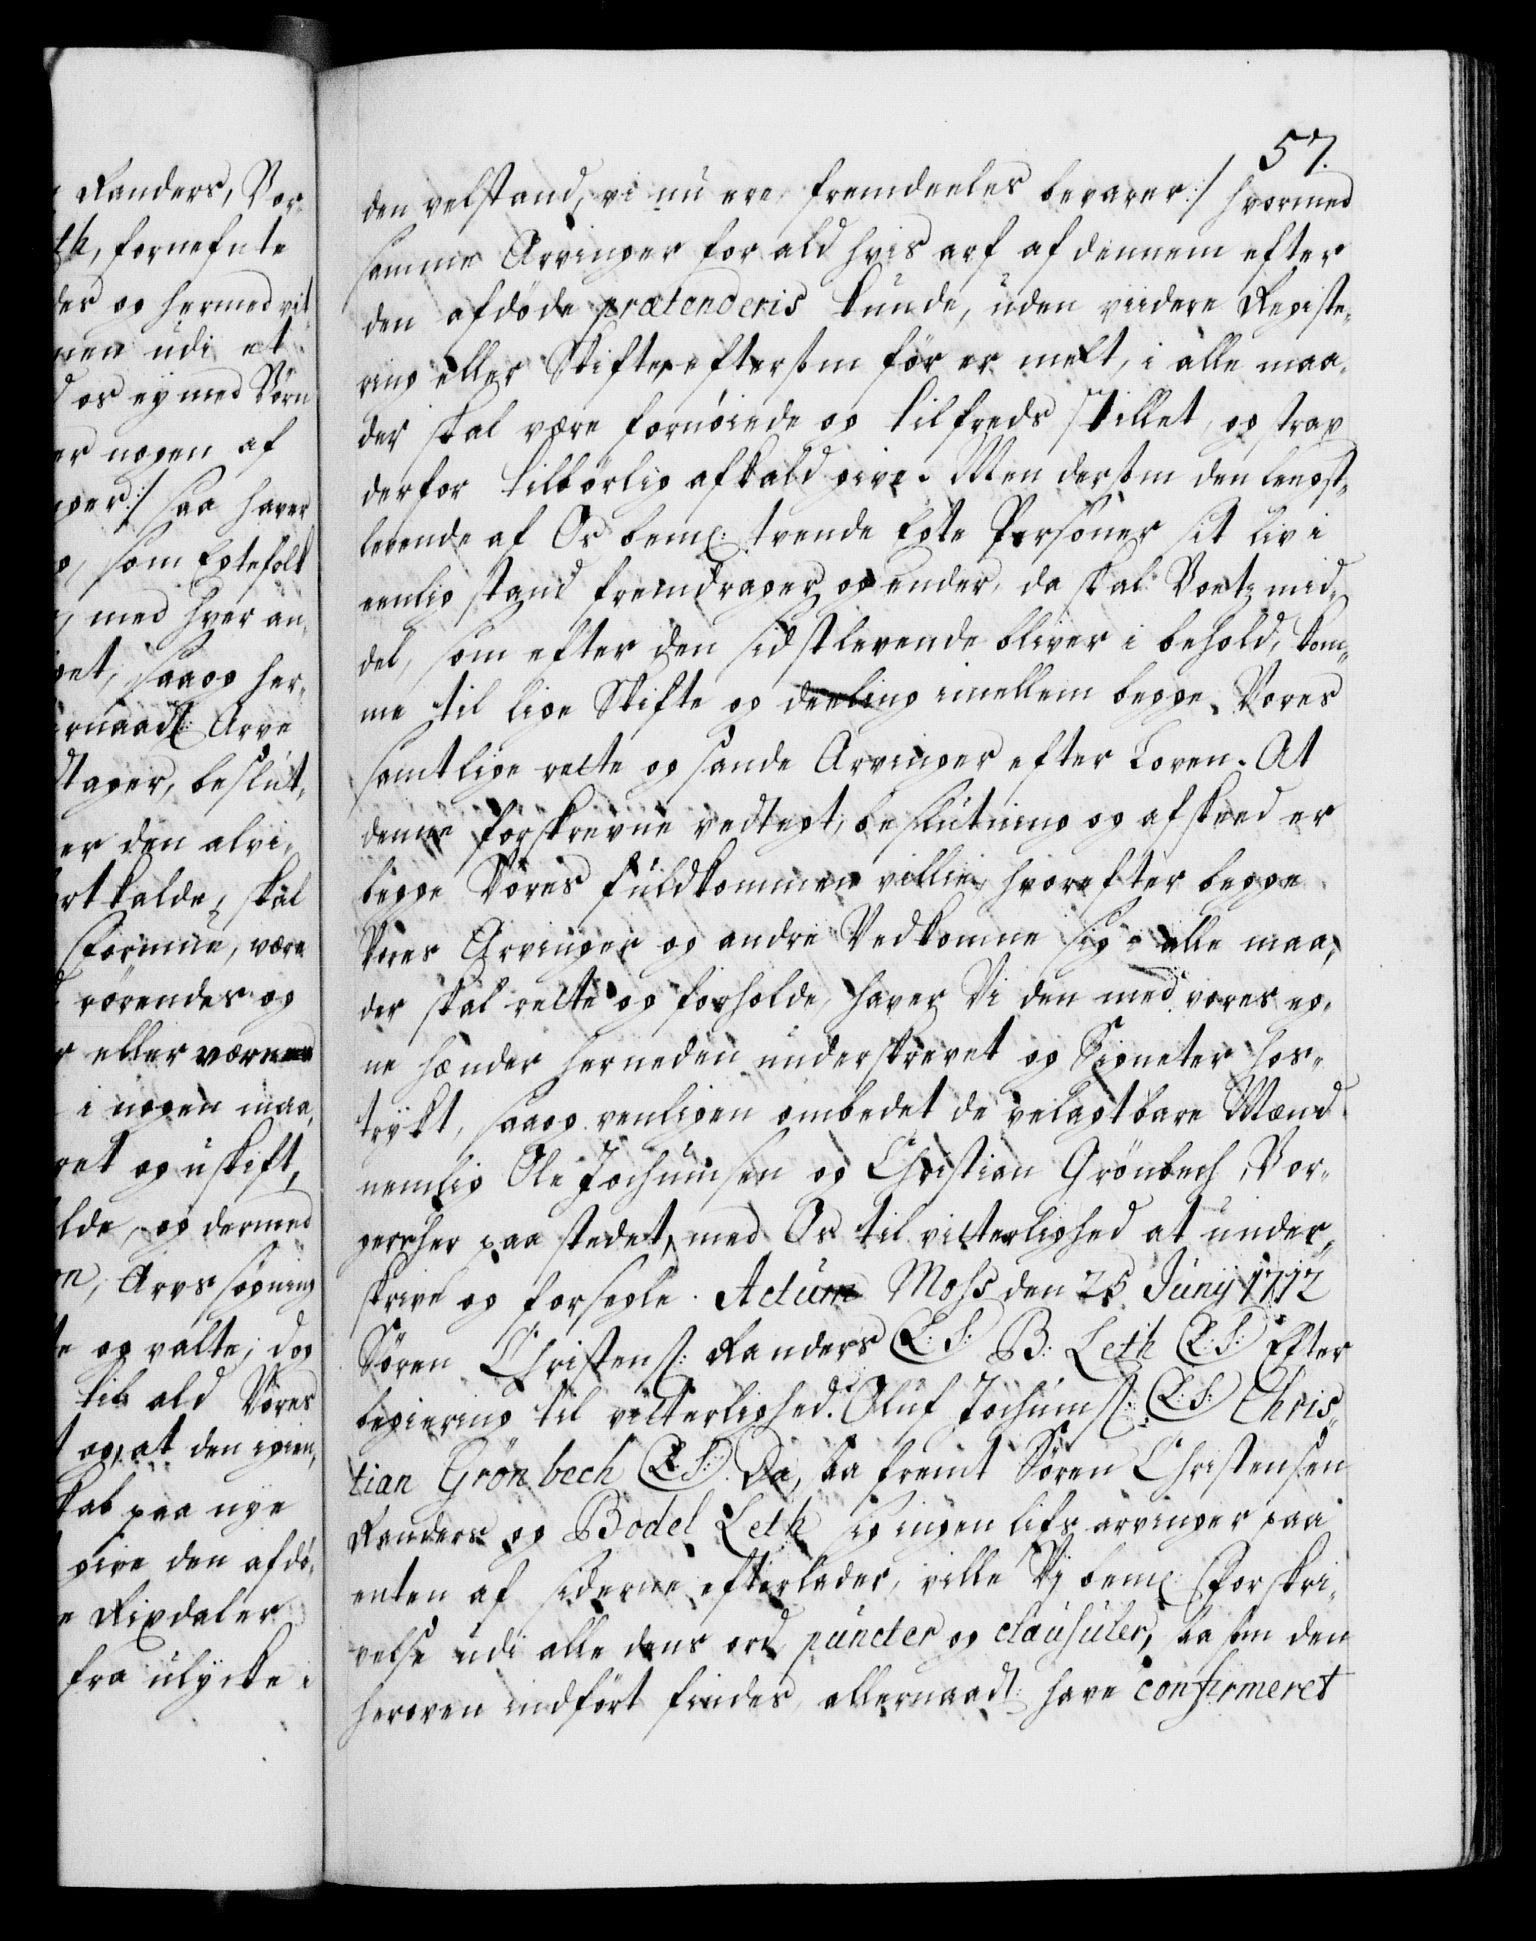 57.
den velstand, vi nu ere, fremdeeles bevarer :/ hvormed
samme Arvinger for ald hvis arf af dennem efter
den afdøde prætenderis kunde, uden viidere Registe-
ring eller Skifte, eftersom før er melt, i alle maa-
der skal være fornøiede og tilfreds stillet, og strax
derfor tilbørlig afkald give. Men dersom den lengst-
levende af Os bemt: tvende Egte Personer sit liv i
eenlig stand fremdrager og ender, da skal Voris mid-
del, som efter den sidstlevende bliver i behold, kom-
me til lige Skifte og deeling imellem begge Vores
samtlige rette og sande Arvinger efter Loven. At
denne forskrevne vedtegt, beslutning og afskeed er
begge Vores fuldkommen villie, hvorefter begge
Vores Arvinger og andre Vedkomne sig i alle maa-
der skal rette og forholde, haver Vi den med vores eg-
ne hænder herneden underskrevet og Signeter hos-
trykt, saa og venligen ombedet de velagtbare Mænd
nemlig Ole Jochumsen og Christian Grönbech, Bor-
gerher paa stedet, med Os til vitterlighed at under-
skrive og forsegle. Actum Moss den 25 Junij 1712
Søren Christens: Randers (L: S:) B: Leth (L: S:) Efter
begiering til vitterlighed. Oluf Jochums: (L: S:) Chris-
tian Grönbech (L: S:). Da, saa fremt Søren Christensen
Randers og Bodel Leth sig ingen lifs arvinger paa
enten af siderne efterlader, ville Vj bemte Forskri-
velse udi alle dens ord, puncter og clausuler, saa som den
heroven indført findes, allernaadt: have confirmeret
Randers, Bor-
th, fornefnte
der og hermed vit-
men udi et
os ey med Børn
er nogen af
ger :/ saa haver
g, som Egtefolk
, med hver an-
get, saa og her-
ernaadt: Arve
tager, beslut-
er den alvi-
ortkalde, skal
Formue, være
rørendes og
r eller værende
i nogen maa-
ret og uskift,
lde, og dermed
on, Arvs søgning
te og valte; dog
til ald Vores
og, at den igien-
skab paa nye
give den afdø-
e Rixdaler
fra ulycke i